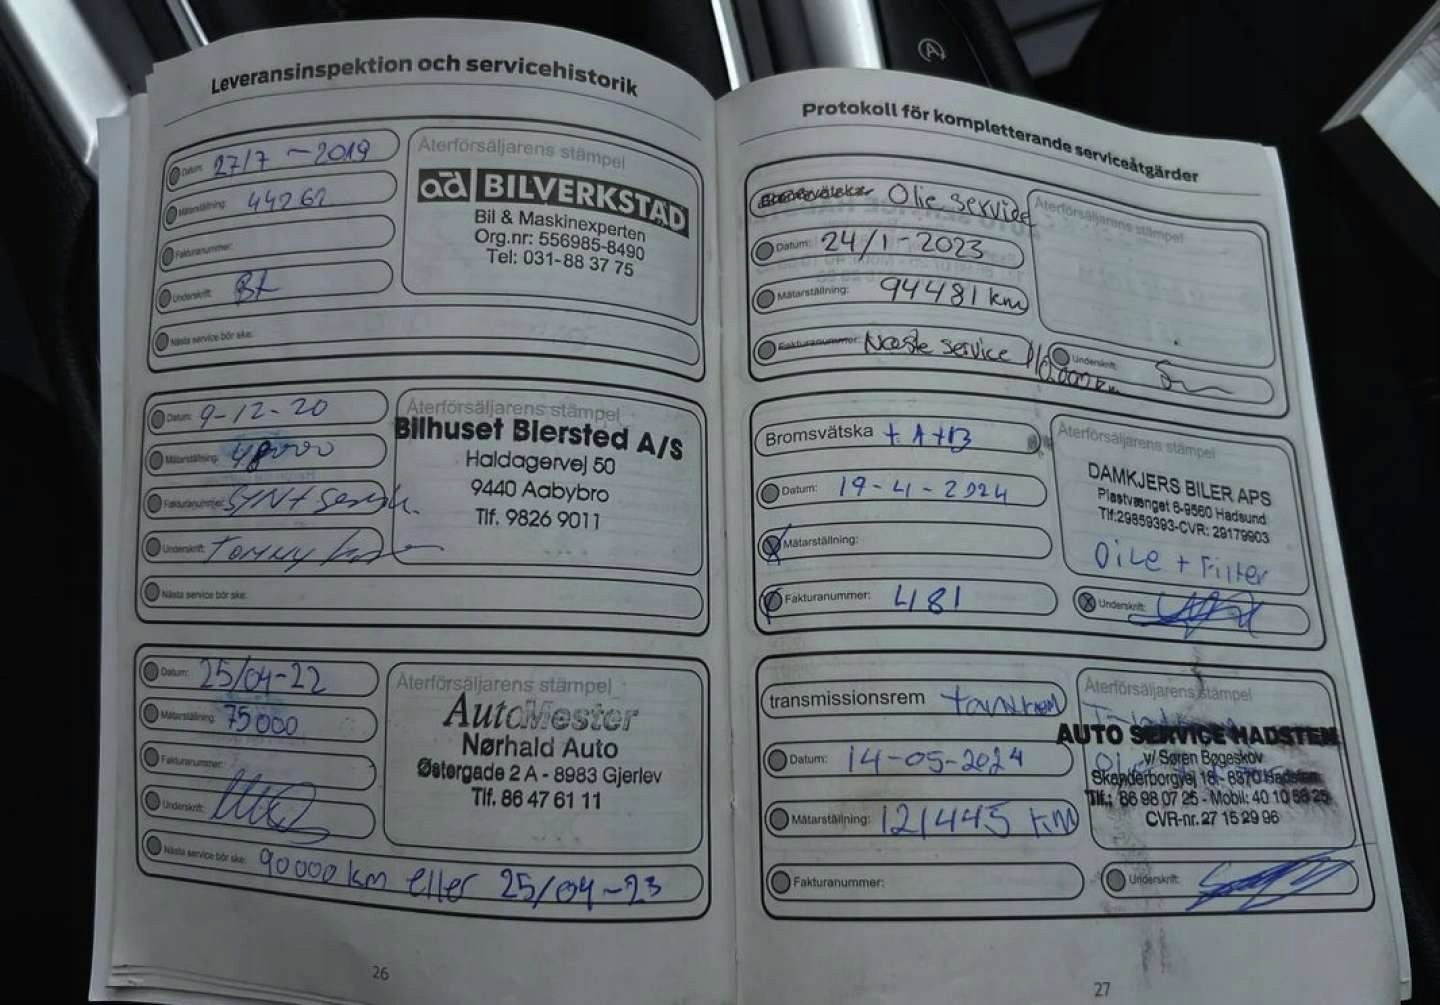 Leveransinspektion och servicehistorik
Datum: 27/7 - 2019
Mätarställning: 44262
Fakturanummer:
Underskrift:
Nästa service bör ske:
Återförsäljarens stämpel
ad BILVERKSTAD
Bil & Maskinexperten
Org.nr: 556985-8490
Tel: 031-88 37 75
Datum: 9-12-20
Mätarställning: 48000
Fakturanummer: SYN +
Underskrift: Tommy
Nästa service bör ske:
Återförsäljarens stämpel
Bilhuset Biersted A/S
Haldagervej 50
9440 Aabybro
Tlf. 9826 9011
Datum: 25/04-22
Mätarställning: 75000
Fakturanummer:
Underskrift:
Nästa service bör ske: 90000 km eller 25/04-23
Återförsäljarens stämpel
AutoMester
Nørhald Auto
Østergade 2 A - 8983 Gjerlev
Tlf. 86 47 61 11
26
Protokoll för kompletterande serviceåtgärder
Bromsvätska Olie service
Datum: 24/1-2023
Mätarställning: 94481 km
Fakturanummer: Næste service
Återförsäljarens stämpel
Underskrift:
Bromsvätska + A+B
Datum: 19-4-2024
Mätarställning:
Fakturanummer: 481
Återförsäljarens stämpel
DAMKJERS BILER APS
Plastvænget 6-9560 Hadsund
Tlf:29859393-CVR: 29179903
OiLe + Filter
Underskrift:
transmissionsrem tandrem
Datum: 14-05-2024
Mätarställning: 121445 KM
Fakturanummer:
Återförsäljarens stämpel
AUTO SERVICE HADSTEN
v/ Søren Bøgeskov
Skanderborgvej 18 - 8370 Hadsten
Tlf.: 86 98 07 25 - Mobil: 40 10 58 25
CVR-nr. 27 15 29 96
Underskrift:
27